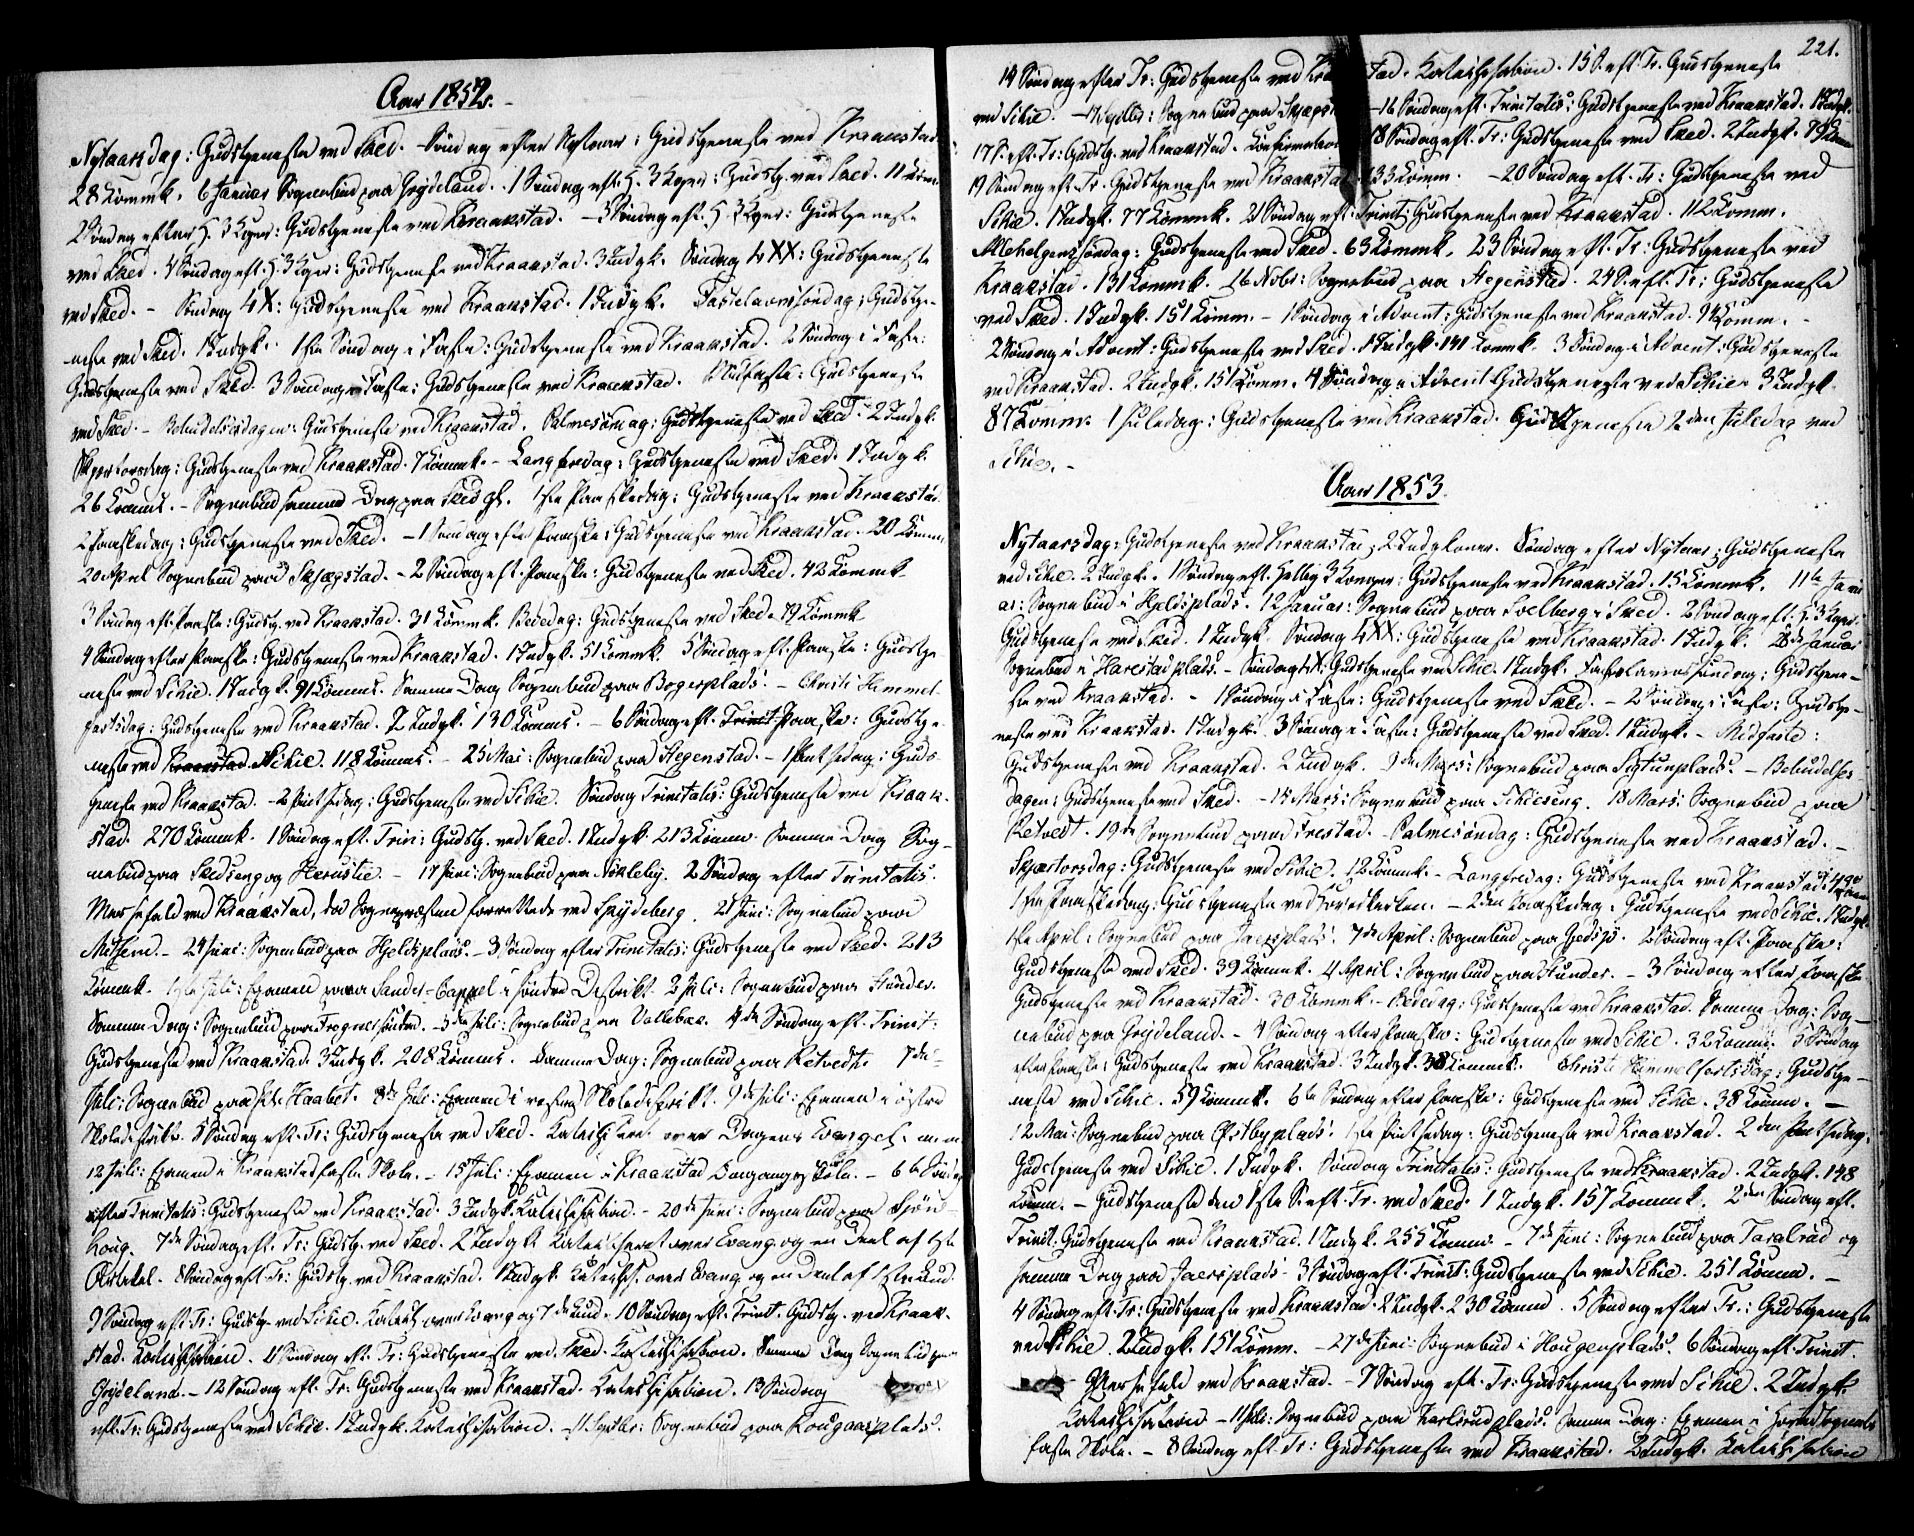 Aar 1852.
Nytaarsdag: Gudstjeneste ved Skie. Søndag efter Nytaar: Gudstjeneste ved Kraakstad
28 Komnk. 6 Januar Sognebud paa Grydeland. 1 Søndag eft. H. 3 Kger: Gudstj. ved Skie. 11 Komnk
2 Søndag efter H. 3 Kger: Gudstjeneste ved Kraakstad. - 3 Søndag eft. H. 3 Kger: Gudstjeneste
ved Skie. 4 Søndag eft. H. 3 Kger: Gudstjeneste ved Kraakstad. 3 Indgk. Søndag LXX: Gudstjeneste
ved Skie. - Søndag LX: Gudstjeneste ved Kraakstad. 1 Indgk. Fastelavnssøndag: Gudstje-
neste ved Skie. 1 Indgk. 1ste Søndag i Faste: Gudstjeneste ved Kraakstad. 2 Søndag i Faste:
Gudstjeneste ved Skie. 3 Søndag i Faste: Gudstjeneste ved Kraakstad. Midfaste: Gudstjeneste
ved Skie. - Bebudelsesdagen: Gudstjeneste ved Kraakstad. Palmesøndag: Gudstjeneste ved Skie. 2 Indgk.
Skjertorsdag: Gudstjeneste ved Kraakstad. 7 Komnk. - Langfredag: Gudstjeneste ved Skie. 1 Indgk.
26 Komnk. - Sognebud samme Dag paa Skie. 1ste Paaskedag: Gudstjeneste ved Kraakstad
2 Paaskedag: Gudstjeneste ved Skie. - 1 Søndag efter Paaske: Gudstjeneste ved Kraakstad. 20 Komnk
20 April Sognebud paa Skjægstad. - 2 Søndag eft. Paaske: Gudstjeneste ved Skie. 42 Komnk
3 Søndag eft. Paaske: Gudstj. ved Kraakstad. 31 Komnk. Bededag: Gudstjeneste ved Skie. 79 Komnk
4 Søndag efter Paaske: Gudstjeneste ved Kraakstad. 1 Indgk. 51 Komnk. 5 Søndag eft. Paaske: Gudstje-
neste ved Skie. 1 Indgk. 91 Komnk. Samme Dag Sognebud paa Bøgerplads. - Christi Himmel-
fartsdag: Gudstjeneste ved Kraakstad. 2 Indgk. 130 Komnk. - 6 Søndag eft. Trinit. Paaske: Gudstje-
neste ved Kraakstad Skie. 118 Komnk. - 25 Mai: Sognebud paa Hegenstad. - 1 Pintsedag: Guds-
tjeneste ved Kraakstad. - 2 Pintsedag: Gudstjeneste ved Skie. Søndag Trinitatis: Gudstjeneste ved Kraak-
stad. 270 Komnk. 1 Søndag eft. Trin: Gudstj. ved Skie. 1 Indgk. 213 Komnk. Samme Dag Sog-
nebud paa Skieseng og. - 17 Juni: Sognebud paa Nøkleby. 2 Søndag efter Trinitatis:
Messefald ved Kraakstad, da Sognepræsten forrettede ved Spydeberg. 21 Juni: Sognebud paa
- 24 Juni: Sognebud paa Hjelsplads. - 3 Søndag efter Trinitatis: Gudstjeneste ved Skie. 213
Komnk. 1ste Juli: Examen paa Sander-Cappel i søndre Distrikt. 2 Juli: Sognebud paa Hunder.
Samme Dag: Sognebud paa. - 3de Juli: Sognebud paa. 4de Søndag eft. Trinit:
Gudstjeneste ved Kraakstad. 3 Indgk. 208 Komnk. Samme Dag: Sognebud paa Retvedt. 7de
Juli: Sognebud paa Haabet. 8de Juli: Examen i vestre Skoledistrikt. 9de Juli: Examen i østre
Skoledistrikt. 5 Søndag eft. Tr: Gudstjeneste ved Skie. Katechiseret over Dagens Evangelium
12 Juli: Examen i Kraakstad faste Skole. - 15 Juli: Examen i Kraakstad Omgangsskole. - 6te Søndag
efter Trinitatis: Gudstjeneste ved Kraakstad. 3 Indgk. Katechisation. - 20de Juni: Sognebud paa
7de Søndag eft. Tr: Gudstj. ved Skie. 2 Indgk. Katechiseret over Evang. og en Deel af 1ste
Artikel. 8 Søndag eft. Tr: Gudstj. ved Kraakstad. 1 Indgk. Katechis. over Evang. og en Deel af 1ste Bud.
9 Søndag eft. Tr: Gudstj. ved Skie. Katech. over Evang. og 7de Bud. 10 Søndag eft. Trinit. Gudstj. ved Kraak-
stad. Katechisation. 11 Søndag eft. Tr: Gudstjeneste ved Skie. Katechisation. Samme Dag Sognebud paa
Grydeland. - 12 Søndag eft. Tr: Gudstjeneste ved Kraakstad. Katechisation. 13 Søndag
eft. Tr: Gudstjeneste ved Skie. 1 Indgk. Katechisation. - 11 Septbr: Sognebud paa Kongaasplads.
221.
14 Søndag efter Tr: Gudstjeneste ved Kraakstad. Katechisation. 15 S. eft. Tr. Gudstjeneste
ved Skie. - Septbr: Sognebud paa - 16 Søndag eft. Trinitatis: Gudstjeneste ved Kraakstad. 1 Indgk.
17 S. eft. Tr: Gudstj. ved Kraakstad. Confirmation 18 Søndag eft. Tr: Gudstjeneste ved Skie. 2 Indgk. 79 Komnk
19 Søndag eft. Tr. Gudstjeneste ved Kraakstad 133 Komm. - 20 Søndag eft. Tr: Gudstjeneste ved
Skie. 1 Indgk. 77 Komnk. 21 Søndag eft. Trinit: Gudstjeneste ved Kraakstad. 112 Komm.
Allehelgenssøndag: Gudstjeneste ved Skie. 63 Komnk. 23 Søndag eft. Tr: Gudstjeneste ved
Kraakstad. 131 Komnk. 16 Novbr: Sognebud paa Hegenstad. 24 S. eft. Tr: Gudstjeneste
ved Skie. 1 Indgk. 151 Komm. - 1 Søndag i Advent: Gudstjeneste ved Kraakstad. 94 Komm.
2 Søndag i Advent: Gudstjeneste ved Skie. 1 Indgk. 141 Komnk. 3 Søndag i Advent: Gudstjeneste
ved Kraakstad. 2 Indgk. 151 Komm. 4 Søndag i Advent Gudstjeneste ved Skie. 3 Indgk.
87 Komm. 1 Juledag: Gudstjeneste ved Kraakstad. Gudstjeneste 2den Juledag ved
Skie. -
Aar 1853.
Nytaarsdag: Gudstjeneste ved Kraakstad; 2 Indgk. Søndag efter Nytaar: Gudstjeneste
ved Skie. 2 Indgk. 1 Søndag eft. Hellig 3 Konger: Gudstjeneste ved Kraakstad. 15 Komnk. 11te Janu
ar: Sognebud i Hjelsplads. 12 Januar: Sognebud paa Solberg i Skie. 2 Søndag eft. H. 3 Kger:
Gudstjeneste ved Skie. 1 Indgk. Søndag LXX: Gudstjeneste ved Kraakstad. 1 Indgk. 28de Januar
Sognebud i Harestadplads. - Søndag LX: Gudstjeneste ved Skie. 1 Indgk. Fastelavnssøndag: Gudstjene-
ste ved Kraakstad. - 1 Søndag i Faste: Gudstjeneste ved Skie. - 2 Søndag i Faste: Gudstje-
neste ved Kraakstad. 1 Indgk. 3 Søndag i Faste: Gudstjeneste ved Skie. 1 Indgk. - Midfaste:
Gudstjeneste ved Kraakstad. 2 Indgk. 9de Marts: Sognebud paa Sigtunplads. - Bebudelses-
dagen: Gudstjeneste ved Skie. - 15 Marts: Sognebud paa Skieseng. 18 Marts: Sognebud paa
Retvedt. 19de Sognebud paa. - Palmesøndag: Gudstjeneste ved Kraakstad. -
Skjærtorsdag: Gudstjeneste ved Skie. 12 Komnk. - Langfredag: Gudstjeneste ved Kraakstad. 49
1ste Paaskedag: Gudstjeneste ved. - 2den Paaskedag: Gudstjeneste ved Skie. 1 Indgk
1ste April: Sognebud paa Jaersplads. 7de April: Sognebud paa Gedsjø. 2 Søndag eft. Paaske:
Gudstjeneste ved Skie. 39 Komnk. 4 April: Sognebud paa Hunder. - 3 Søndag efter Paaske
Gudstjeneste ved Kraakstad. 30 Komnk. - Bededag: Gudstjeneste ved Kraakstad. Samme Dag: Sog-
nebud paa Grydeland. - 4 Søndag efter Paaske: Gudstjeneste ved Skie. 32 Komnk. 5 Søndag
efter Paaske: Gudstjeneste ved Kraakstad. 3 Indgk. 38 Komnk. Christi Himmelfartsdag: Gudstje-
neste ved Skie. 59 Komnk. 6te Søndag efter Paaske: Gudstjeneste ved Skie. 38 Komm. -
12 Mai: Sognebud paa Østbyplads. 1ste Pintsedag: Gudstjeneste ved Kraakstad. 2den Pintsedag:
Gudstjeneste ved Skie. 1 Indgk. Søndag Trinitatis: Gudstjeneste ved Kraakstad. 2 Indgk. 148
Komm. - Gudstjeneste den 1ste S. eft. Tr. ved Skie. 1 Indgk. 157 Komnk. 2den Søndag eft.
Trinit. Gudstjeneste ved Kraakstad. 1 Indgk. 255 Komm. - 7de Juni: Sognebud paa Taralrud og
samme Dag paa Jaersplads. 3 Søndag eft. Trinit: Gudstjeneste ved Skie. 251 Komm. -
4 Søndag eft. Tr: Gudstjeneste ved Kraakstad. 2 Indgk. 230 Komm. 5 Søndag efter Tr.: Gudstjeneste
ved Skie. 2 Indgk. 151 Komm. - 27de Juni: Sognebud i Hougenplads. 6 Søndag eft. Trinit.
Messefald ved Kraakstad. - 7 Søndag eft. Tr: Gudstjeneste ved Skie. 2 Indgk.
Katechisation - 11 Juli: Sognebud paa Karlsrudplads. Samme Dag: Examen i
faste Skole. - 8 Søndag eft. Tr: Gudstjeneste ved Kraakstad. 2 Indgk. Katechisation